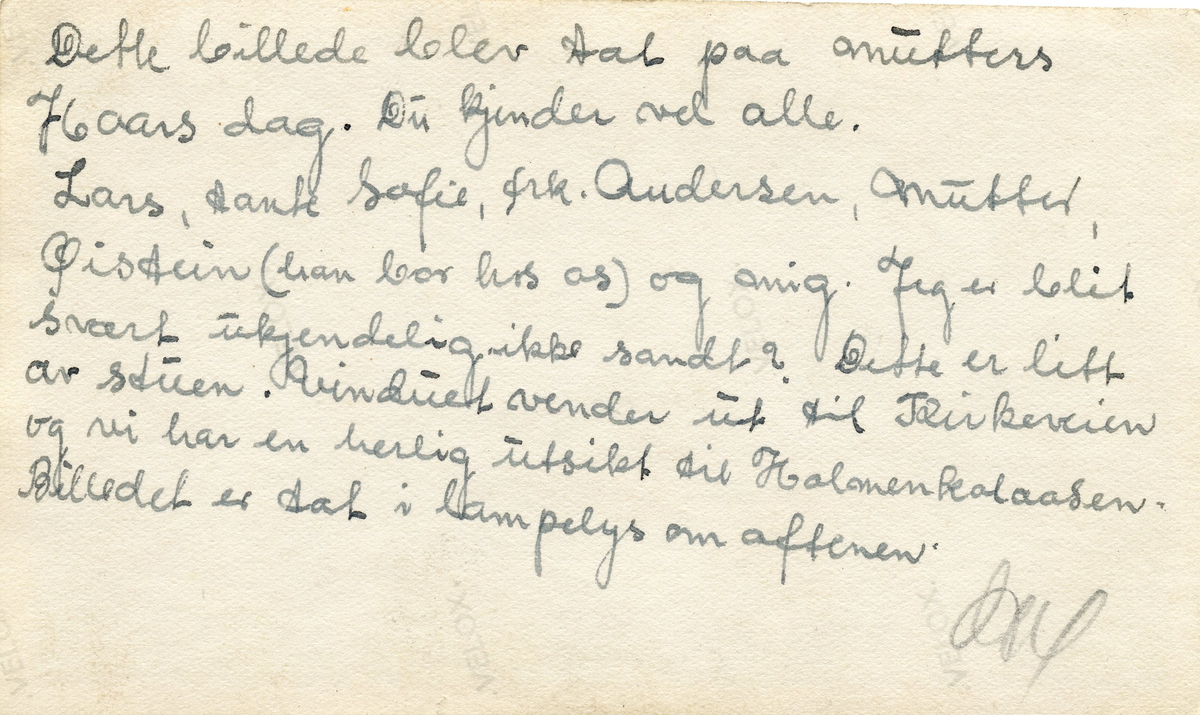 Dette billede blev tat paa mutters
Haars dag. Du kjender vel alle.
Lars, tante Sofie, frk. Andersen, mutter,
Øistein (han bor hos os) og mig. Jeg er blit
svært ukjendelig ikke sandt? Dette er litt
av stuen. Vinduet vender ut til Kirkeveien
og vi har en herlig utsikt til Holmenkolaasen.
Billedet er tat i lampelys om aftenen.
VELOX
VELOX
VELOX
VELOX